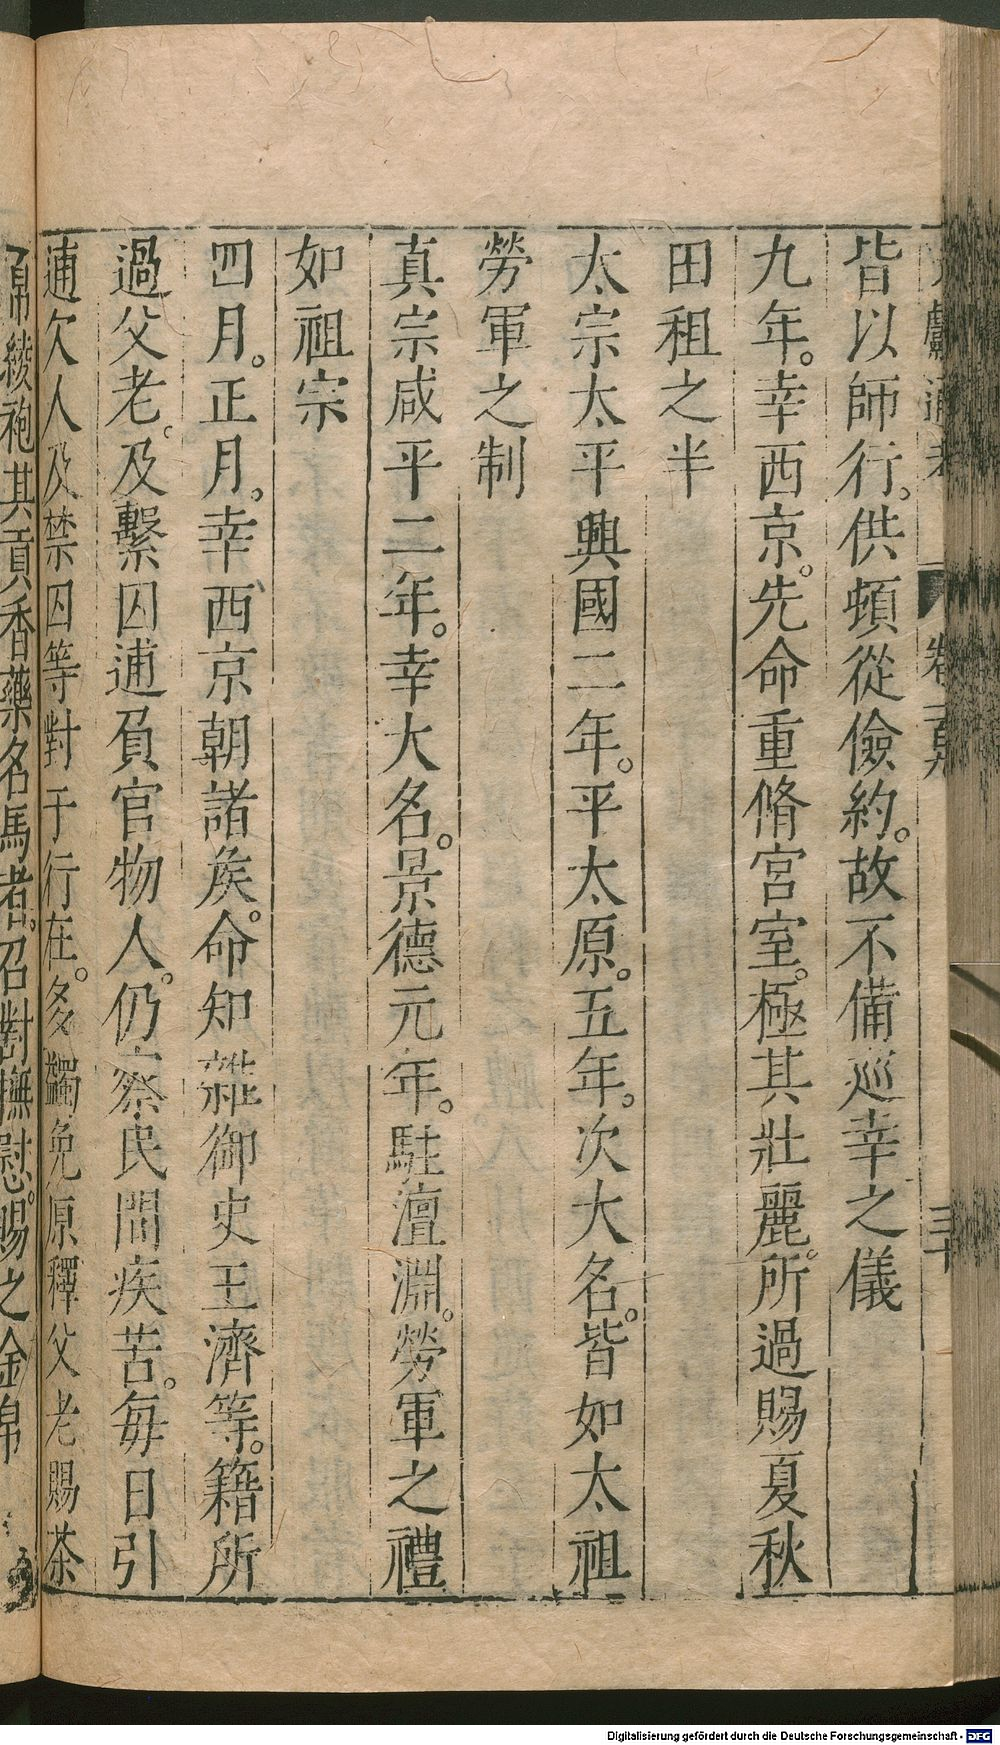 皆以師行。供頓從儉約。故不備巡幸之儀
九年。幸西京。先命重脩宮室。極其壯麗。所過賜夏秋
田租之半
太宗太平興國二年。平太原。五年。次大名。皆如太祖
勞軍之制
真宗咸平二年。幸大名。景德元年。駐澶淵。勞軍之禮
如祖宗
四月。正月。幸西京朝諸矦。命知雜御史王濟等。籍所
過父老。及繫囚逋負官物人。仍察民間疾苦。每日引
逋欠人及禁囚等對于行在。多蠲免原釋父老賜茶
帛綾袍其貢香藥名馬者。召對撫慰。賜之金帛
獻通考 卷一百九 三十
Digitalisierung gefördert durch die Deutsche Forschungsgemeinschaft - DFG